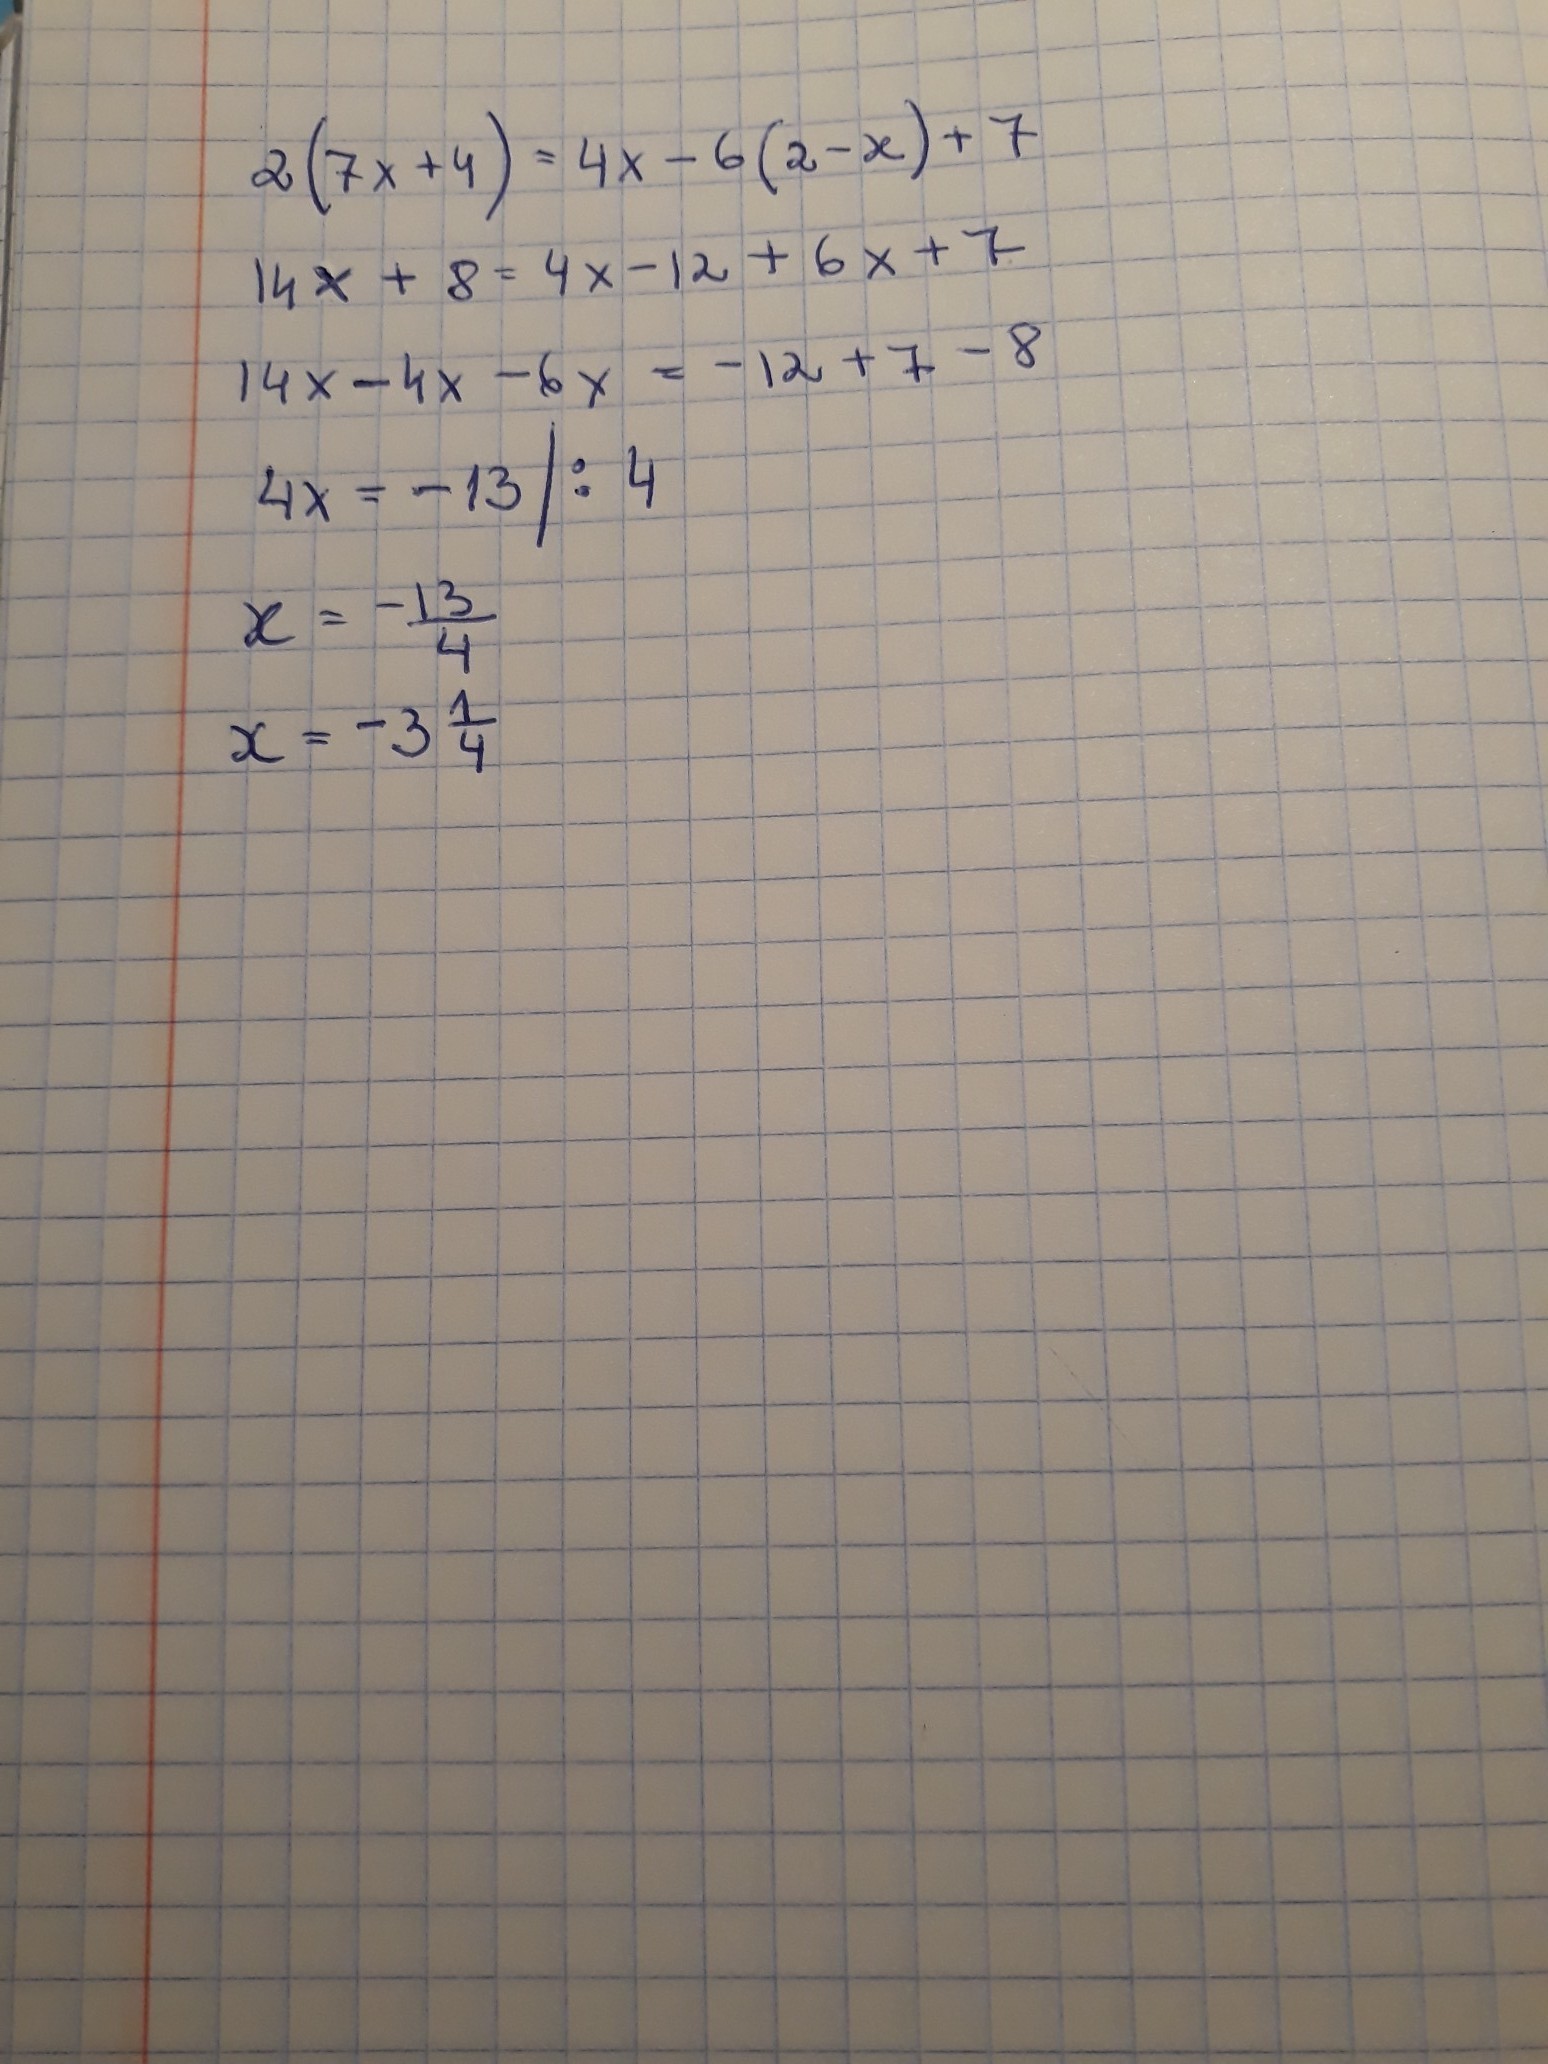 2(7x+4) = 4x - 6(2-x) + 7
14x + 8 = 4x - 12 + 6x + 7
14x - 4x - 6x = -12 + 7 - 8
4x = -13 /: 4
x = -13/4
x = -3 1/4